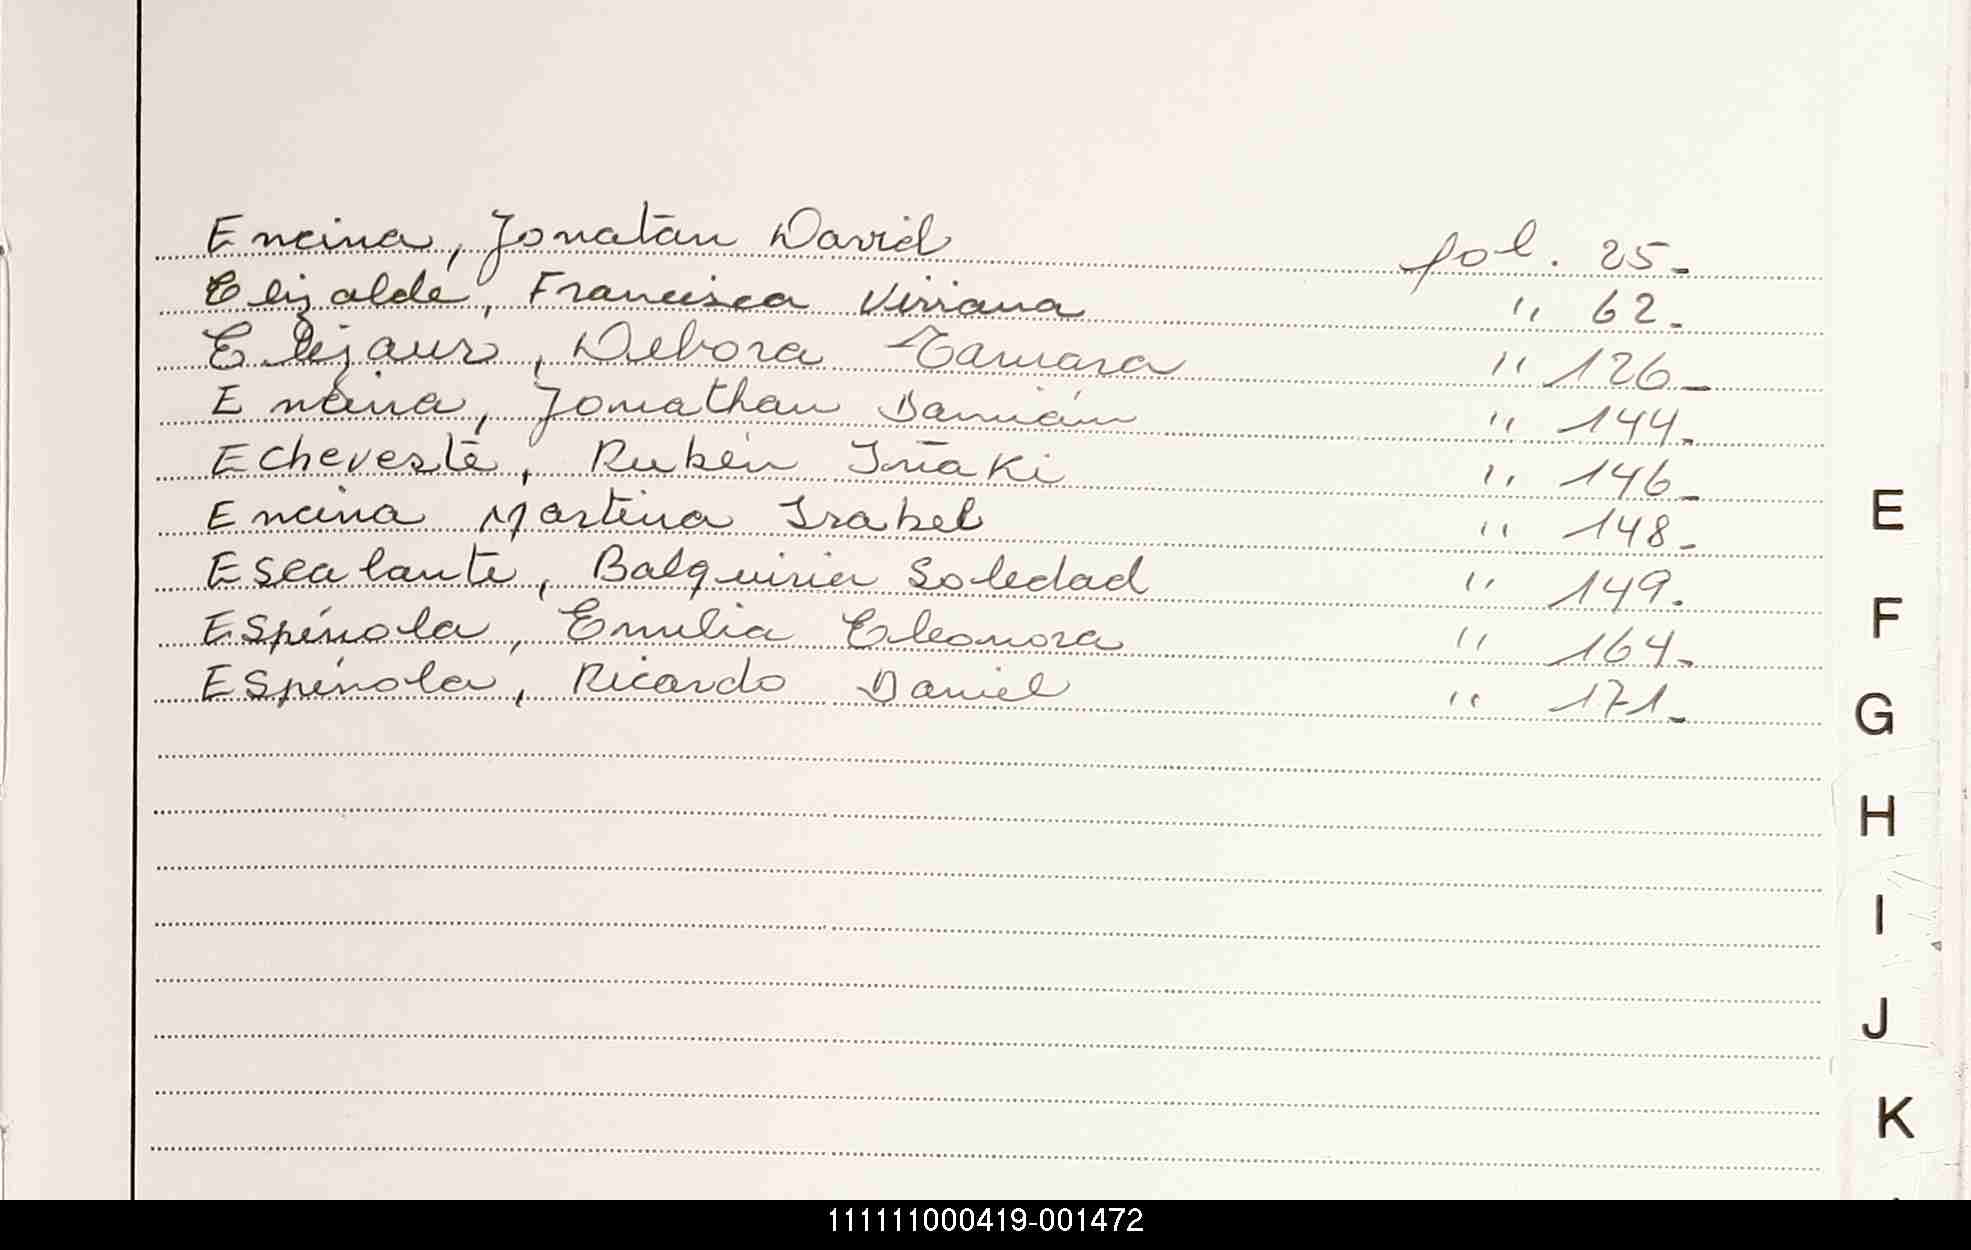 Encina, Jonatan David fol. 25-
Elizalde, Francisca Viviana " 62-
Elizaur, Debora Tamara " 126-
Encina, Jonathan Damián " 144-
Echeveste, Rubén Iñaki " 146-
Encina Martina Isabel " 148-
Escalante, Balquiria Soledad " 149.
Espínola, Emilia Eleonora " 164-
Espínola, Ricardo Daniel " 171-
E
F
G
H
I
J
K
111111000419-001472